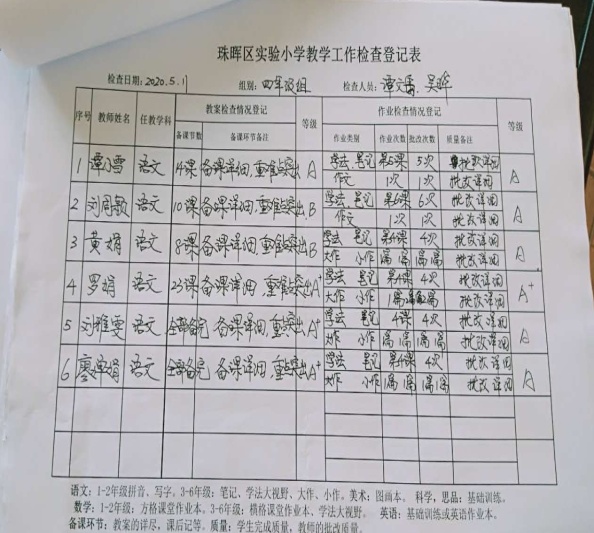 珠晖区实验小学教学工作检查登记表
检查日期:2020.5.11 组别:四年级组 检查人员:谭文 吴晖
序号 教师姓名 任教学科 教案检查情况登记 等级 作业检查情况登记 等级
备课节数 备课环节备注 作业类别 作业次数 批改次数 质量备注
1 谭小雪 语文 14课 备课详细,重难点突出 A 学法 笔记 第5课 5次 批改详细 A
作文 1次 1次 批改详细
2 刘周敏 语文 10课 备课详细,重难点突出 B 学法 笔记 第6课 6次 批改详细 A
作文 1次 1次 批改详细
3 黄娟 语文 8课 备课详细,重难点突出 B 学法 笔记 第4课 4次 批改详细 A
大作 小作 1篇 1篇 1篇 1篇 批改详细
4 罗娟 语文 23课 备课详细,重难点突出 A+ 学法 笔记 第4课 4次 批改详细 A+
大作 小作 1篇 批改详细
5 刘雅雯 语文 全部备完 备课详细,重点突出 A+ 学法 笔记 4课 4次 批改详细 A
大作 小作 1篇 1篇 1篇 1篇 批改详细
6 廖婵娟 语文 全部备完 备课详细,重点突出 A+ 学法 笔记 第4课 4次 批改详细 A
大作 小作 1篇 1篇 1篇 1篇 批改详细
语文:1-2年级拼音、写字。3-6年级:笔记、学法大视野、大作、小作。美术:图画本。 科学,思品:基础训练。
数学:1-2年级:方格课堂作业本。3-6年级:横格课堂作业本、学法大视野。 英语:基础训练或英语作业本。
备课环节:教案的详尽,课后记等。质量:学生完成质量,教师的批改质量。